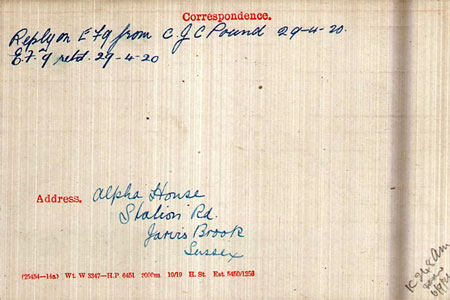 Correspondence.
Reply on E.F.9 from C J C Pound 29-4-20.
E.F.9 retd. 29-4-20
Address. Alpha House
Station Rd.
Jarvis Brook
Sussex
(25454—14a) Wt. W 3347—H.P. 6451 2000m. 10/19 H. St. Est 5450/1253